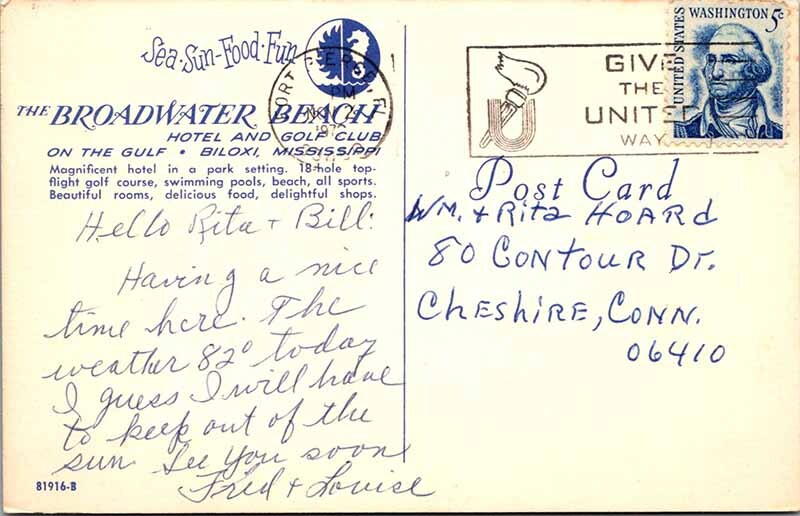 Sea·Sun·Food·Fun
THE BROADWATER BEACH
HOTEL AND GOLF CLUB
ON THE GULF • BILOXI, MISSISSIPPI
Magnificent hotel in a park setting. 18-hole top-
flight golf course, swimming pools, beach, all sports.
Beautiful rooms, delicious food, delightful shops.
Hello Rita + Bill:
Having a nice
time here. The
weather 82° today
I guess I will have
to keep out of the
sun. See you soon
Fred + Louise
81916-B
PM
GIVE
THE
UNITED
WAY
UNITED STATES
WASHINGTON 5¢
Post Card
Wm. + Rita HOARD
80 CONTOUR Dr.
CHESHIRE, CONN.
06410